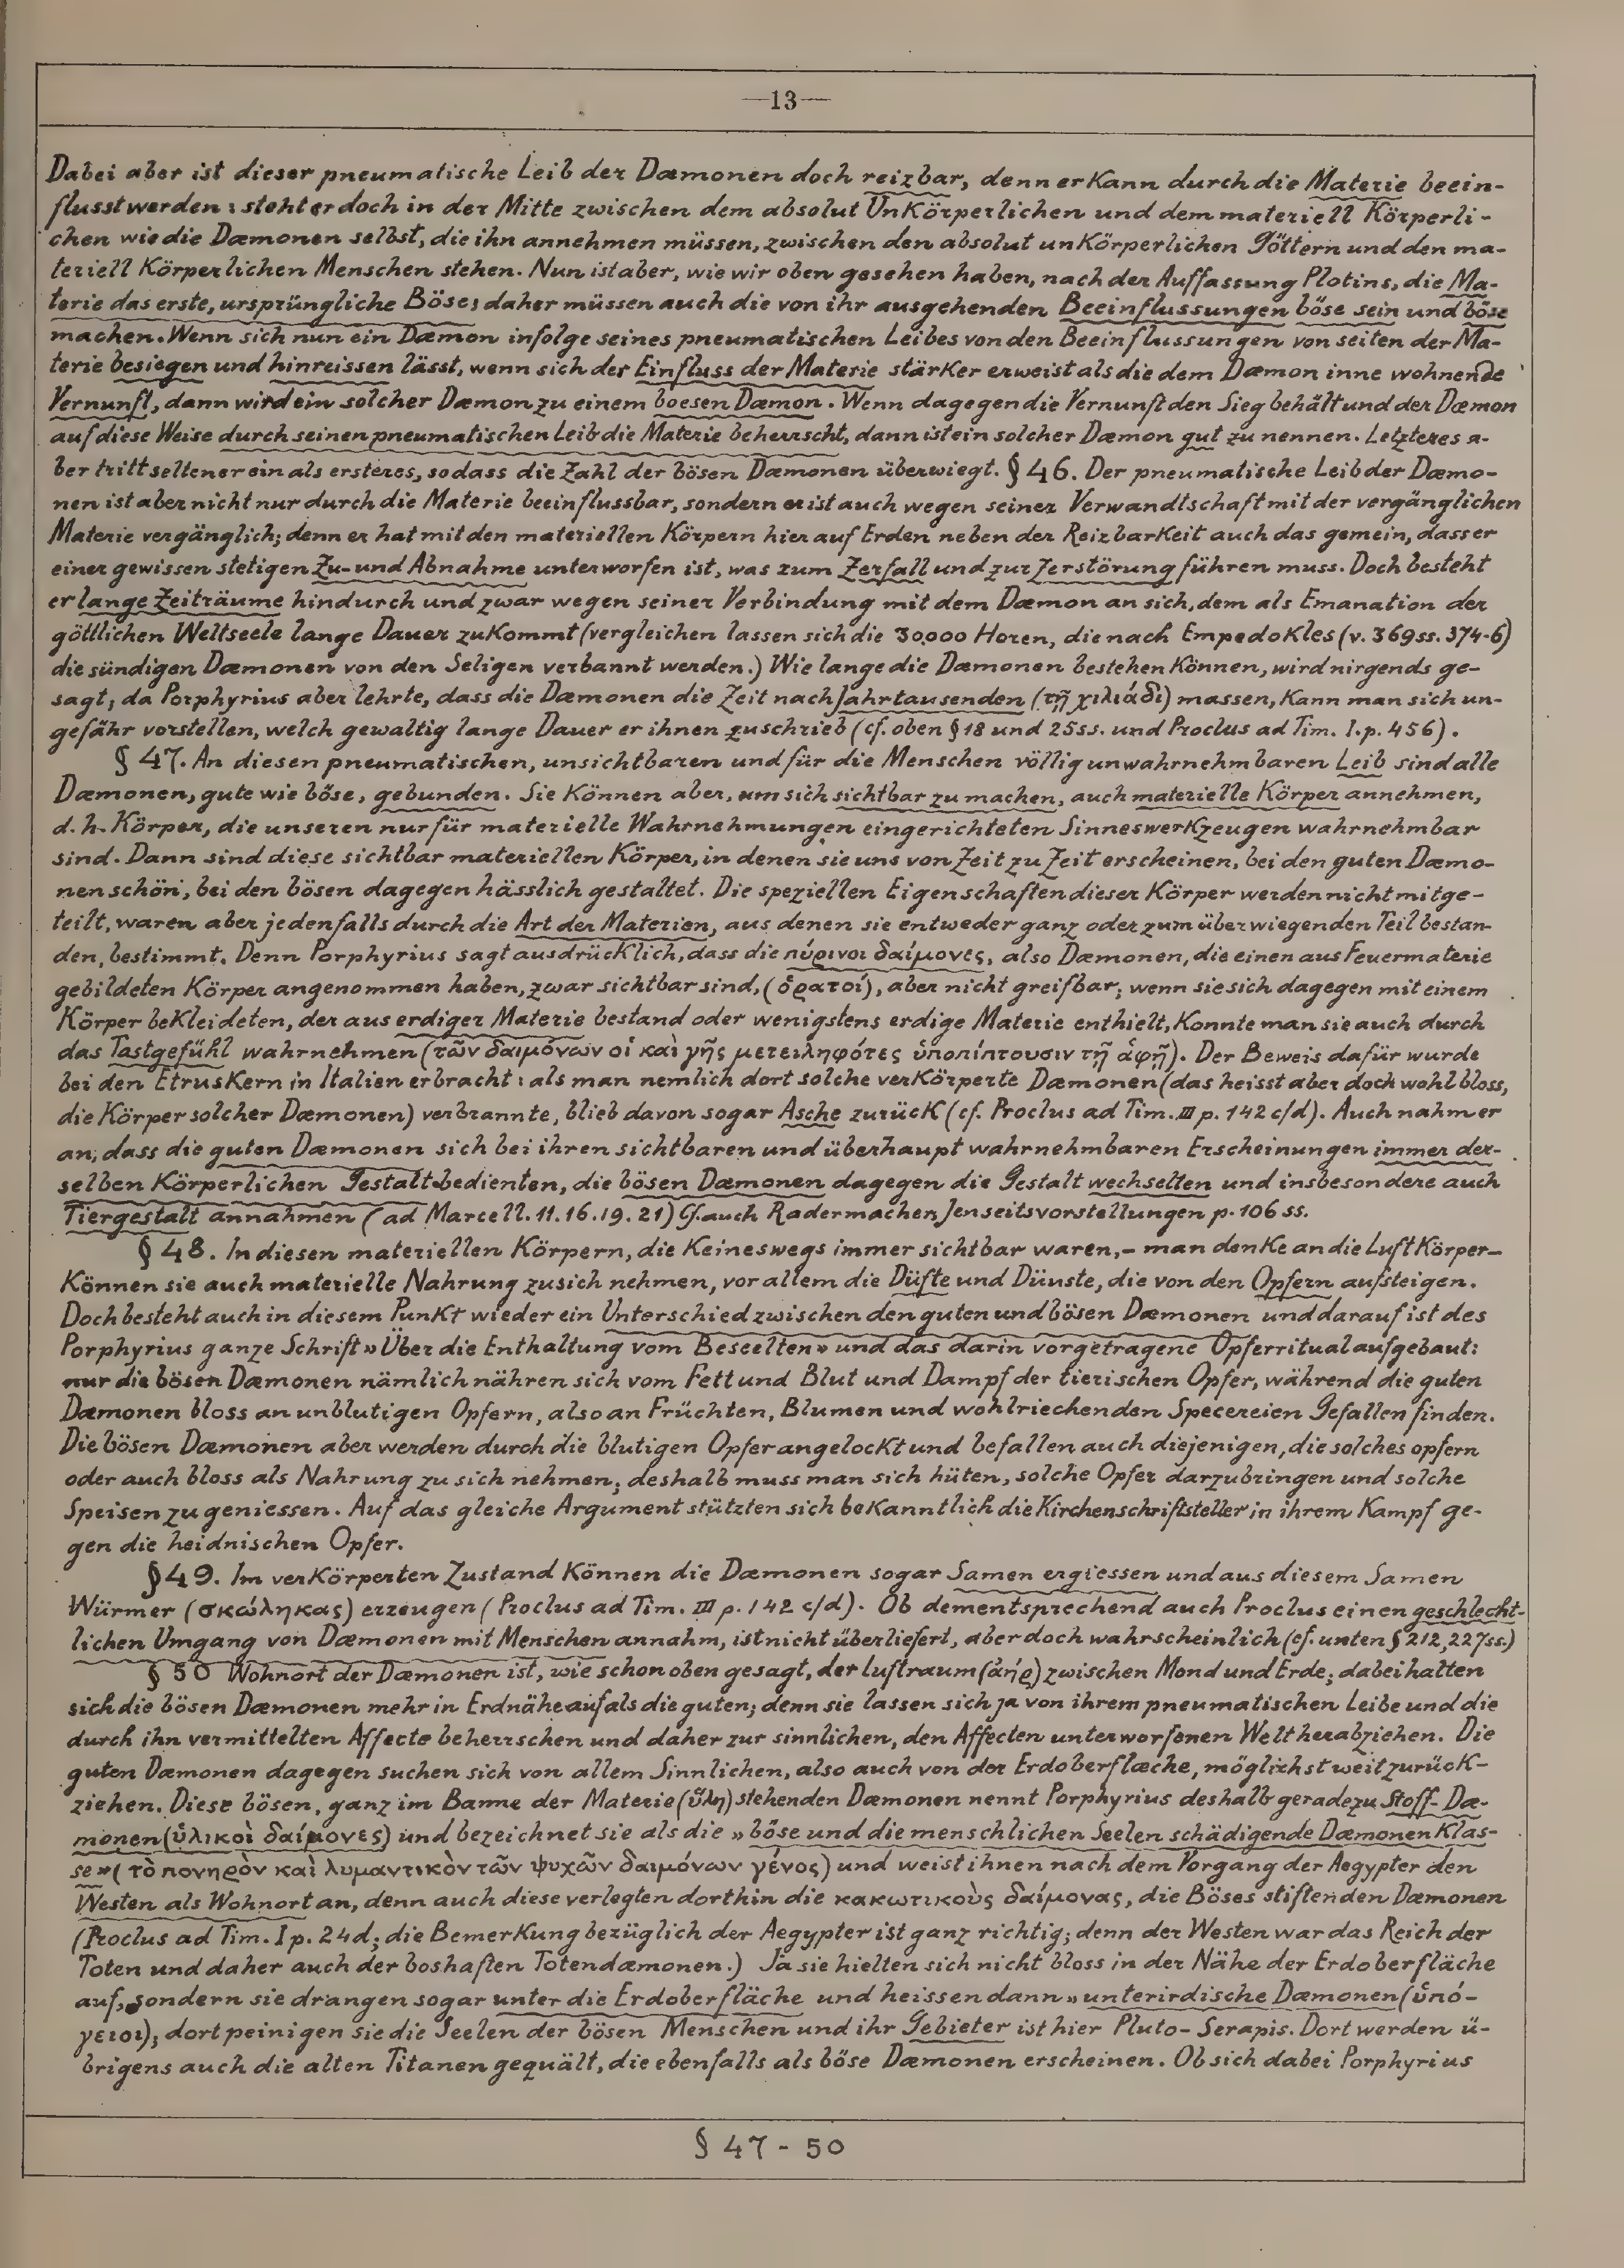 —13—
Dabei aber ist dieser pneumatische Leib der Dæmonen doch reizbar, denn er kann durch die Materie beein-
flusst werden: steht er doch in der Mitte zwischen dem absolut Unkörperlichen und dem materiell Körperli-
chen wie die Dæmonen selbst, die ihn annehmen müssen, zwischen den absolut unkörperlichen Göttern und den ma-
teriell körperlichen Menschen stehen. Nun ist aber, wie wir oben gesehen haben, nach der Auffassung Plotins, die Ma-
terie das erste, ursprüngliche Böse; daher müssen auch die von ihr ausgehenden Beeinflussungen böse sein und böse
machen. Wenn sich nun ein Dæmon infolge seines pneumatischen Leibes von den Beeinflussungen von seiten der Ma-
terie besiegen und hinreissen lässt, wenn sich der Einfluss der Materie stärker erweist als die dem Dæmon inne wohnende
Vernunft, dann wird ein solcher Dæmon zu einem boesen Dæmon. Wenn dagegen die Vernunft den Sieg behält und der Dæmon
auf diese Weise durch seinen pneumatischen Leib die Materie beherrscht, dann ist ein solcher Dæmon gut zu nennen. Letzteres a-
ber tritt seltener ein als ersteres, sodass die Zahl der bösen Dæmonen überwiegt. § 46. Der pneumatische Leib der Dæmo-
nen ist aber nicht nur durch die Materie beeinflussbar, sondern er ist auch wegen seiner Verwandtschaft mit der vergänglichen
Materie vergänglich; denn er hat mit den materiellen Körpern hier auf Erden neben der Reizbarkeit auch das gemein, dass er
einer gewissen stetigen Zu- und Abnahme unterworfen ist, was zum Zerfall und zur Zerstörung führen muss. Doch besteht
er lange Zeiträume hindurch und zwar wegen seiner Verbindung mit dem Dæmon an sich, dem als Emanation der
göttlichen Weltseele lange Dauer zukommt (vergleichen lassen sich die 30,000 Horen, die nach Empedokles (v. 369ss. 374-6)
die sündigen Dæmonen von den Seligen verbannt werden.) Wie lange die Dæmonen bestehen können, wird nirgends ge-
sagt; da Porphyrius aber lehrte, dass die Dæmonen die Zeit nach Jahrtausenden (τῇ χιλιάδι) massen, kann man sich un-
gefähr vorstellen, welch gewaltig lange Dauer er ihnen zuschrieb (cf. oben § 18 und 25ss. und Proclus ad Tim. I. p. 456).
§ 47. An diesen pneumatischen, unsichtbaren und für die Menschen völlig unwahrnehmbaren Leib sind alle
Dæmonen, gute wie böse, gebunden. Sie können aber, um sich sichtbar zu machen, auch materielle Körper annehmen,
d. h. Körper, die unseren nur für materielle Wahrnehmungen eingerichteten Sinneswerkzeugen wahrnehmbar
sind. Dann sind diese sichtbar materiellen Körper, in denen sie uns von Zeit zu Zeit erscheinen, bei den guten Dæmo-
nen schön, bei den bösen dagegen hässlich gestaltet. Die speziellen Eigenschaften dieser Körper werden nicht mitge-
teilt, waren aber jedenfalls durch die Art der Materien, aus denen sie entweder ganz oder zum überwiegenden Teil bestan-
den, bestimmt. Denn Porphyrius sagt ausdrücklich, dass die πύρινοι δαίμονες, also Dæmonen, die einen aus Feuermaterie
gebildeten Körper angenommen haben, zwar sichtbar sind, (ὁρατοί), aber nicht greifbar; wenn sie sich dagegen mit einem
Körper bekleideten, der aus erdiger Materie bestand oder wenigstens erdige Materie enthielt, konnte man sie auch durch
das Tastgefühl wahrnehmen (τῶν δαιμόνων οἱ καὶ γῆς μετειληφότες ὑποπίπτουσιν τῇ ἁφῇ). Der Beweis dafür wurde
bei den Etruskern in Italien erbracht: als man nemlich dort solche verkörperte Dæmonen (das heisst aber doch wohl bloss,
die Körper solcher Dæmonen) verbrannte, blieb davon sogar Asche zurück (cf. Proclus ad Tim. III p. 142 c/d). Auch nahm er
an, dass die guten Dæmonen sich bei ihren sichtbaren und überhaupt wahrnehmbaren Erscheinungen immer der-
selben körperlichen Gestalt bedienten, die bösen Dæmonen dagegen die Gestalt wechselten und insbesondere auch
Tiergestalt annahmen (ad Marcell. 11. 16. 19. 21) Cf. auch Radermacher, Jenseitsvorstellungen p. 106 ss.
§ 48. In diesen materiellen Körpern, die keineswegs immer sichtbar waren, – man denke an die Luftkörper –
können sie auch materielle Nahrung zusich nehmen, vor allem die Düfte und Dünste, die von den Opfern aufsteigen.
Doch besteht auch in diesem Punkt wieder ein Unterschied zwischen den guten und bösen Dæmonen und darauf ist des
Porphyrius ganze Schrift »Über die Enthaltung vom Beseelten» und das darin vorgetragene Opferritual aufgebaut:
nur die bösen Dæmonen nämlich nähren sich vom Fett und Blut und Dampf der tierischen Opfer, während die guten
Dæmonen bloss an unblutigen Opfern, also an Früchten, Blumen und wohlriechenden Specereien Gefallen finden.
Die bösen Dæmonen aber werden durch die blutigen Opfer angelockt und befallen auch diejenigen, die solches opfern
oder auch bloss als Nahrung zu sich nehmen; deshalb muss man sich hüten, solche Opfer darzubringen und solche
Speisen zu geniessen. Auf das gleiche Argument stützten sich bekanntlich die Kirchenschriftsteller in ihrem Kampf ge-
gen die heidnischen Opfer.
§ 49. Im verkörperten Zustand können die Dæmonen sogar Samen ergiessen und aus diesem Samen
Würmer (σκώληκας) erzeugen (Proclus ad Tim. III p. 142 c/d). Ob dementsprechend auch Proclus einen geschlecht-
lichen Umgang von Dæmonen mit Menschen annahm, ist nicht überliefert, aber doch wahrscheinlich (cf. unten § 212, 227ss.)
§ 50 Wohnort der Dæmonen ist, wie schon oben gesagt, der luftraum (ἀήρ) zwischen Mond und Erde; dabei halten
sich die bösen Dæmonen mehr in Erdnähe auf als die guten; denn sie lassen sich ja von ihrem pneumatischen Leibe und die
durch ihn vermittelten Affecte beherrschen und daher zur sinnlichen, den Affecten unterworfenen Welt herabziehen. Die
guten Dæmonen dagegen suchen sich von allem Sinnlichen, also auch von der Erdoberflæche, möglichst weit zurück-
ziehen. Diese bösen, ganz im Banne der Materie (ὕλη) stehenden Dæmonen nennt Porphyrius deshalb geradezu Stoff-Dæ-
monen (ὑλικοὶ δαίμονες) und bezeichnet sie als die »böse und die menschlichen Seelen schädigende Dæmonenklas-
se» (τὸ πονηρὸν καὶ λυμαντικὸν τῶν ψυχῶν δαιμόνων γένος) und weist ihnen nach dem Vorgang der Aegypter den
Westen als Wohnort an, denn auch diese verlegten dorthin die κακωτικοὺς δαίμονας, die Böses stiftenden Dæmonen
(Proclus ad Tim. I p. 24d; die Bemerkung bezüglich der Aegypter ist ganz richtig; denn der Westen war das Reich der
Toten und daher auch der boshaften Totendæmonen.) Ja sie hielten sich nicht bloss in der Nähe der Erdoberfläche
auf, sondern sie drangen sogar unter die Erdoberfläche und heissen dann »unterirdische Dæmonen (ὑπό-
γειοι); dort peinigen sie die Seelen der bösen Menschen und ihr Gebieter ist hier Pluto-Serapis. Dort werden ü-
brigens auch die alten Titanen gequält, die ebenfalls als böse Dæmonen erscheinen. Ob sich dabei Porphyrius
§ 47 - 50